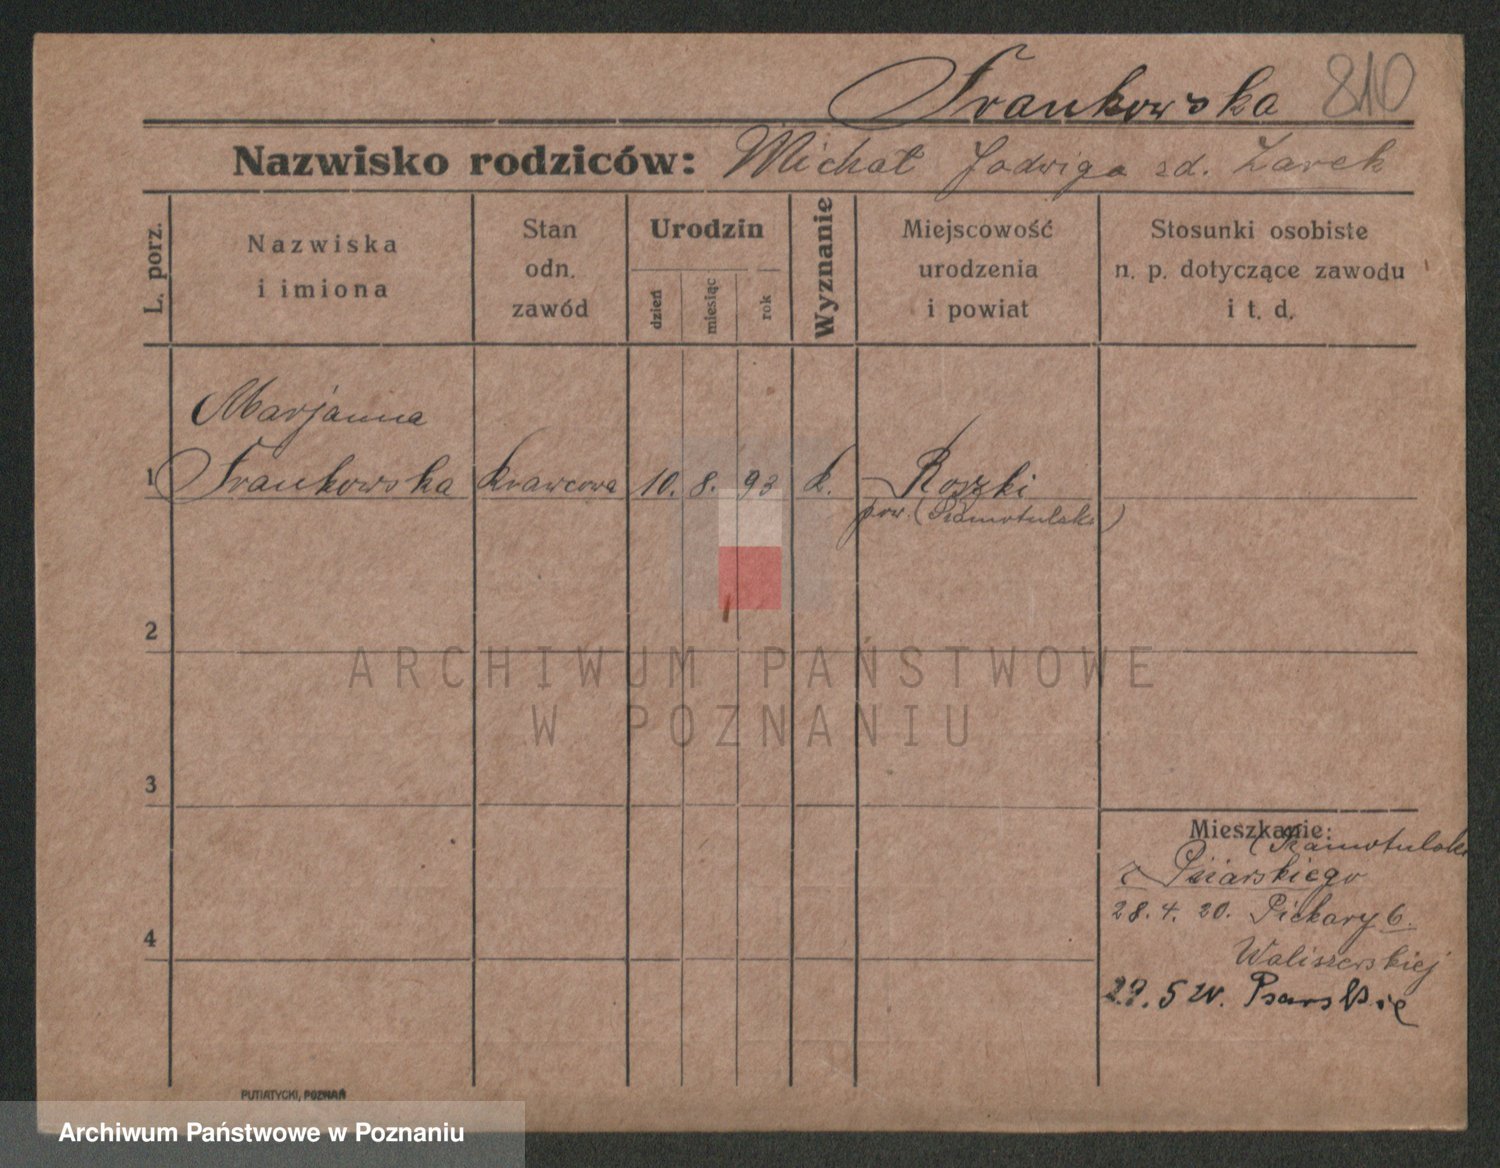 Frankowska 810
Nazwisko rodziców: Michał Jadwiga zd. Żarek
L. porz.
Nazwiska
i imiona
Stan
odn.
zawód
Urodzin
dzień
miesiąc
rok
Wyznanie
Miejscowość
urodzenia
i powiat
Stosunki osobiste
n. p. dotyczące zawodu
i t. d.
Marjanna
1 Frankowska krawcowa 10. 8. 93 k. Roszki
pow. (Szamotulski)
2
ARCHIWUM PAŃSTWOWE
W POZNANIU
3
Mieszkanie:
28. 4. 20. Piekary 6.
4
Waliszewskiej
29. 5 20. Psarskie
PUTIATYCKI, POZNAŃ
Archiwum Państwowe w Poznaniu